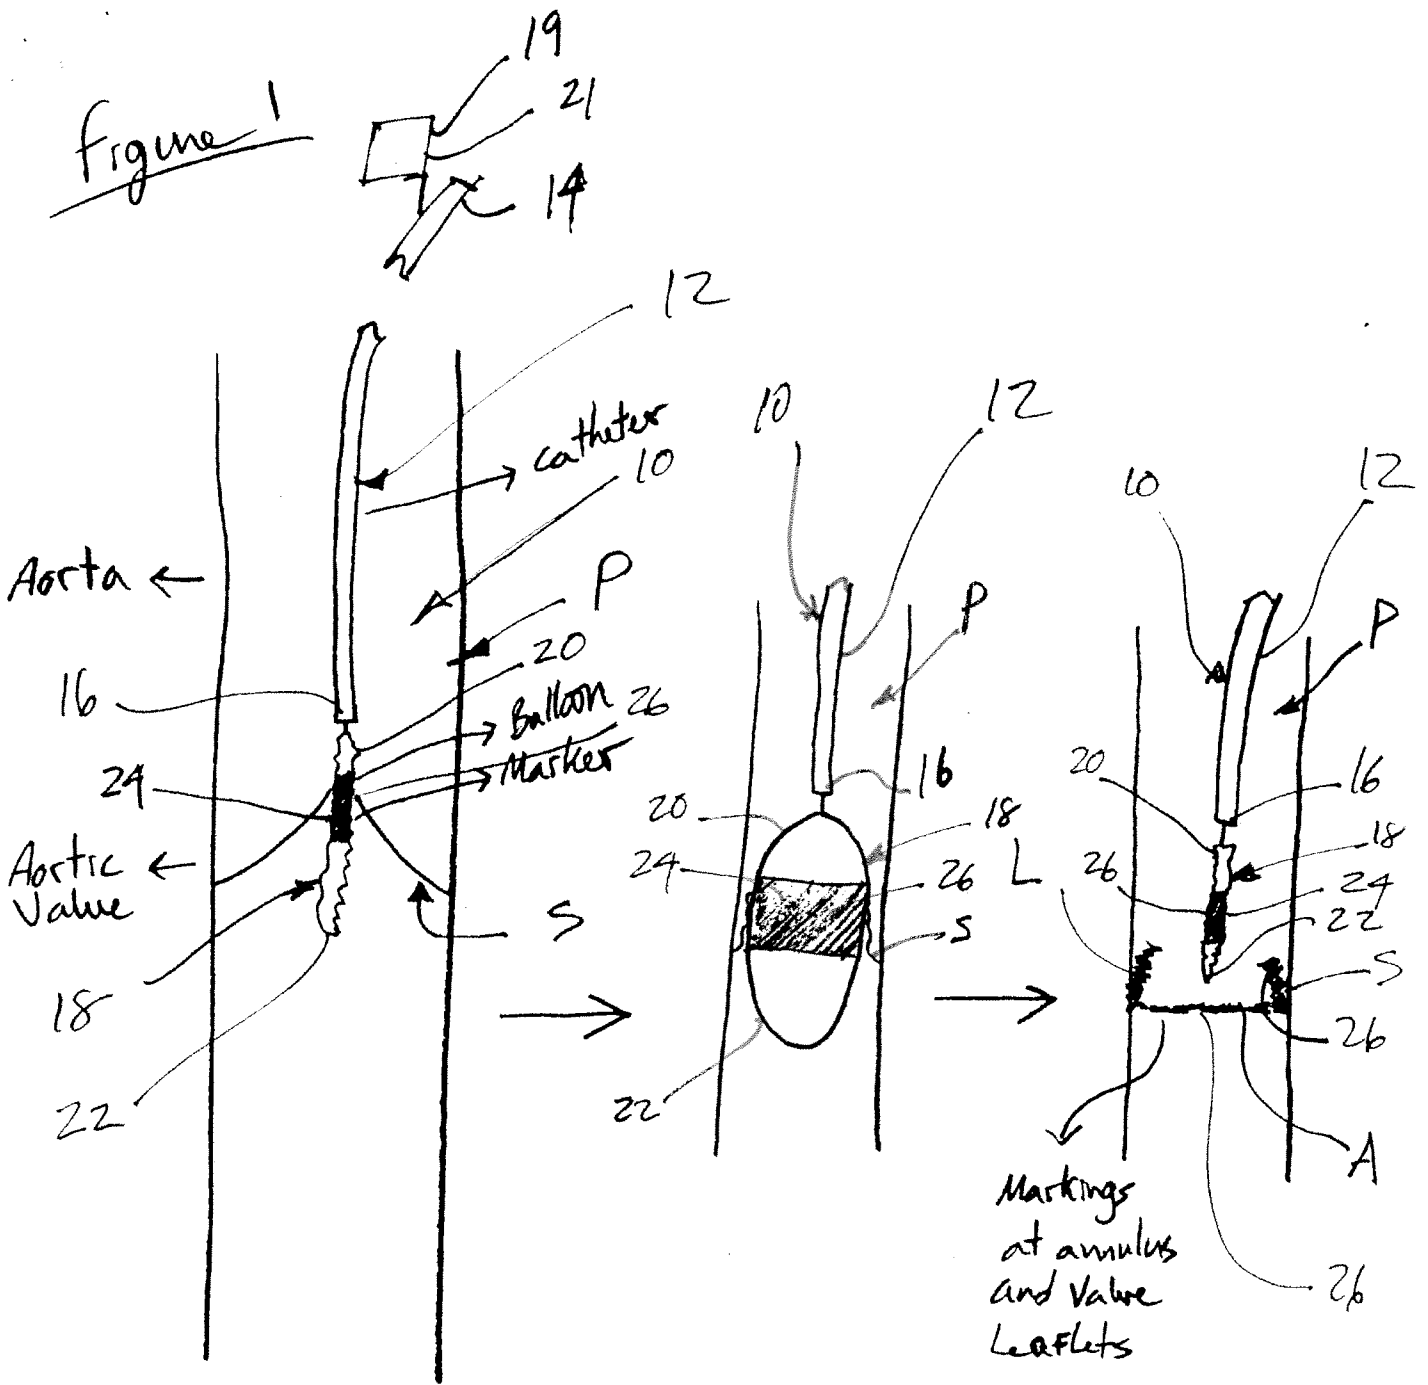 Figure 1
19
21
14
12
catheter
10
Aorta ←
P
20
16
Balloon
26
Marker
24
Aortic ←
Valve
S
18
22
10
12
P
16
20
18
24
26
S
22
10
12
P
20
16
18
L
26
24
22
S
26
A
Markings
at annulus
and Valve
Leaflets
26